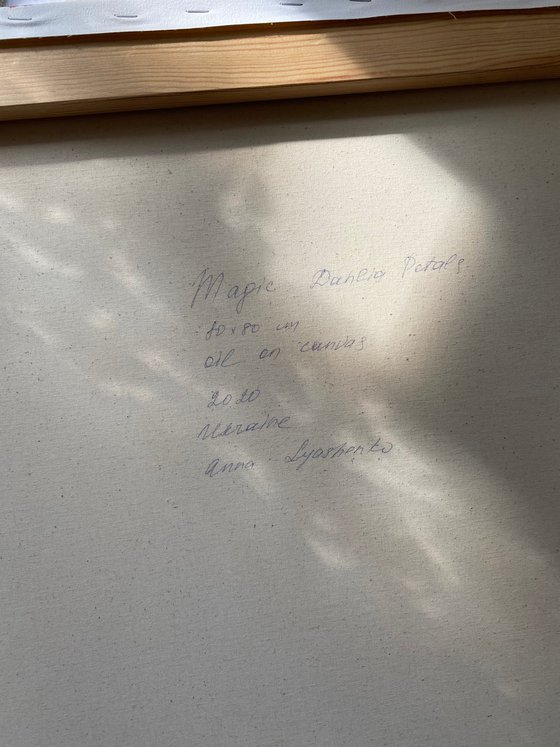 Magic Dahlia Petals
80x80 cm
oil on canvas
2020
Ukraine
Anna Lyashenko